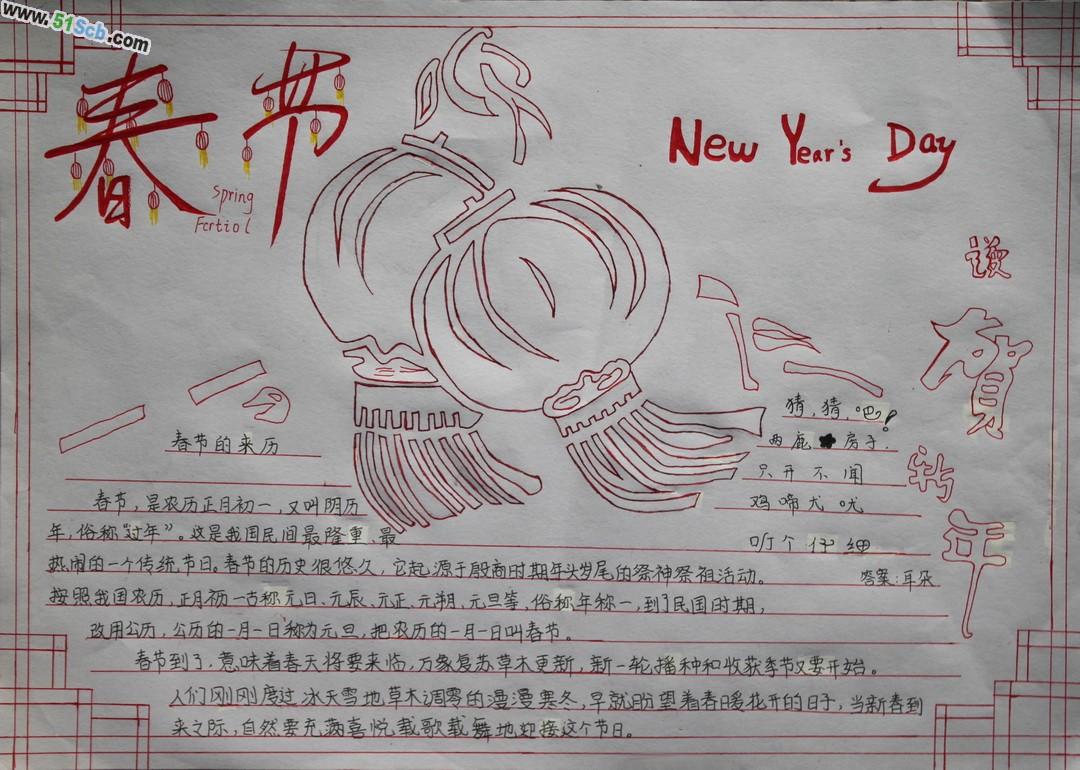 www.51Scb.com
春节
Spring
Fertiol
New Year's Day
谩
贺
新
年
春节的来历
春节，是农历正月初一，又叫阴历
年，俗称"过年"。这是我国民间最隆重、最
热闹的一个传统节日。春节的历史很悠久，它起源于殷商时期年头岁尾的祭神祭祖活动。
按照我国农历，正月初一古称元日、元辰、元正、元朔、元旦等，俗称年称一，到了民国时期，
改用公历，公历的一月一日称为元旦，把农历的一月一日叫春节。
春节到了，意味着春天将要来临，万象复苏草木更新，新一轮播种和收获季节又要开始。
人们刚刚度过冰天雪地草木凋零的漫漫寒冬，早就盼望着春暖花开的日子，当新春到
来之际，自然要充满喜悦载歌载舞地迎接这个节日。
猜，猜，吧！
两扇 房子，
只开不闻
鸡啼犬吠
听个仔细
答案：耳朵